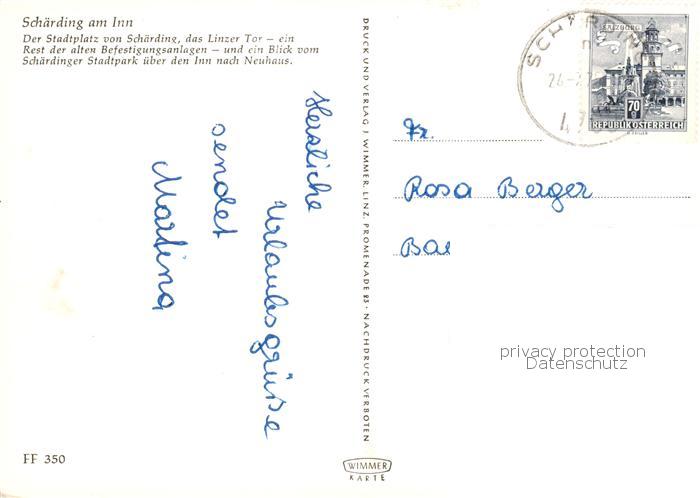 Schärding am Inn
Der Stadtplatz von Schärding, das Linzer Tor – ein
Rest der alten Befestigungsanlagen – und ein Blick vom
Schärdinger Stadtpark über den Inn nach Neuhaus.
Herzliche
Urlaubsgrüße
sendet
Martina
FF 350
DRUCK UND VERLAG J. WIMMER, LINZ, PROMENADE 23 · NACHDRUCK VERBOTEN
WIMMER
KARTE
SCHÄRDING
SALZBURG
70
REPUBLIK ÖSTERREICH
Fr.
Rosa Berger
privacy protection
Datenschutz